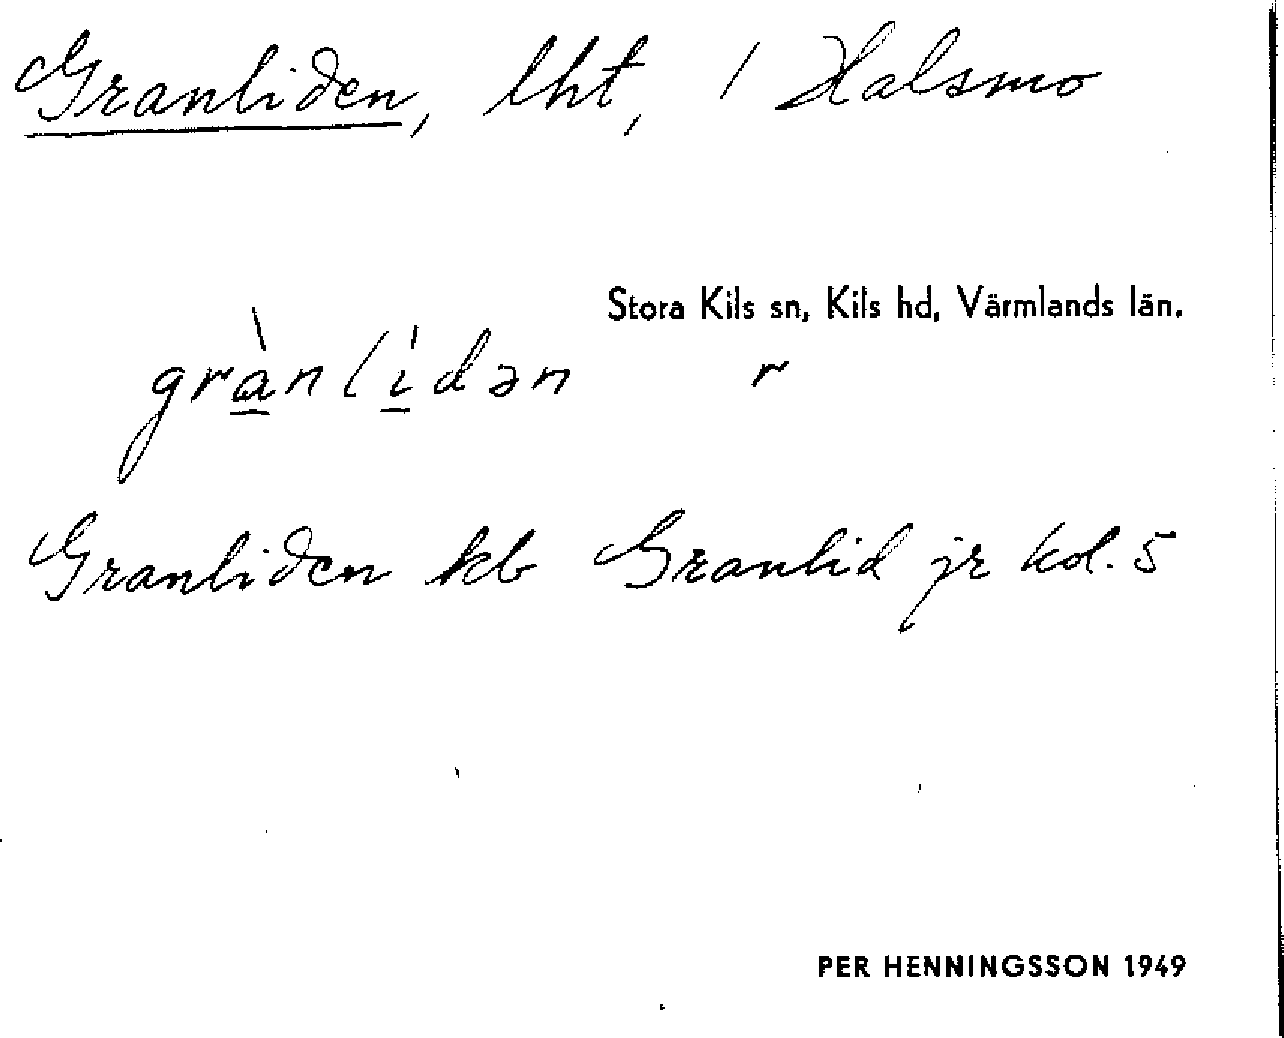 Granliden, lht, / Halsmo
Stora Kils sn, Kils hd, Värmlands län.
grànlìdən r
Granliden kb Granlid jr kd. 5
PER HENNINGSSON 1949